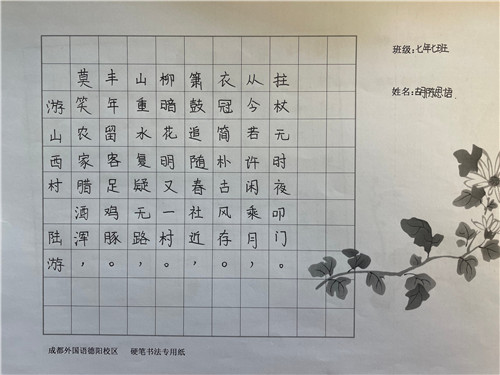 班级:七年七班
姓名:胡思语
游山西村 陆游
莫笑农家腊酒浑,
丰年留客足鸡豚。
山重水复疑无路,
柳暗花明又一村。
箫鼓追随春社近,
衣冠简朴古风存。
从今若许闲乘月,
拄杖无时夜叩门。
成都外国语德阳校区 硬笔书法专用纸